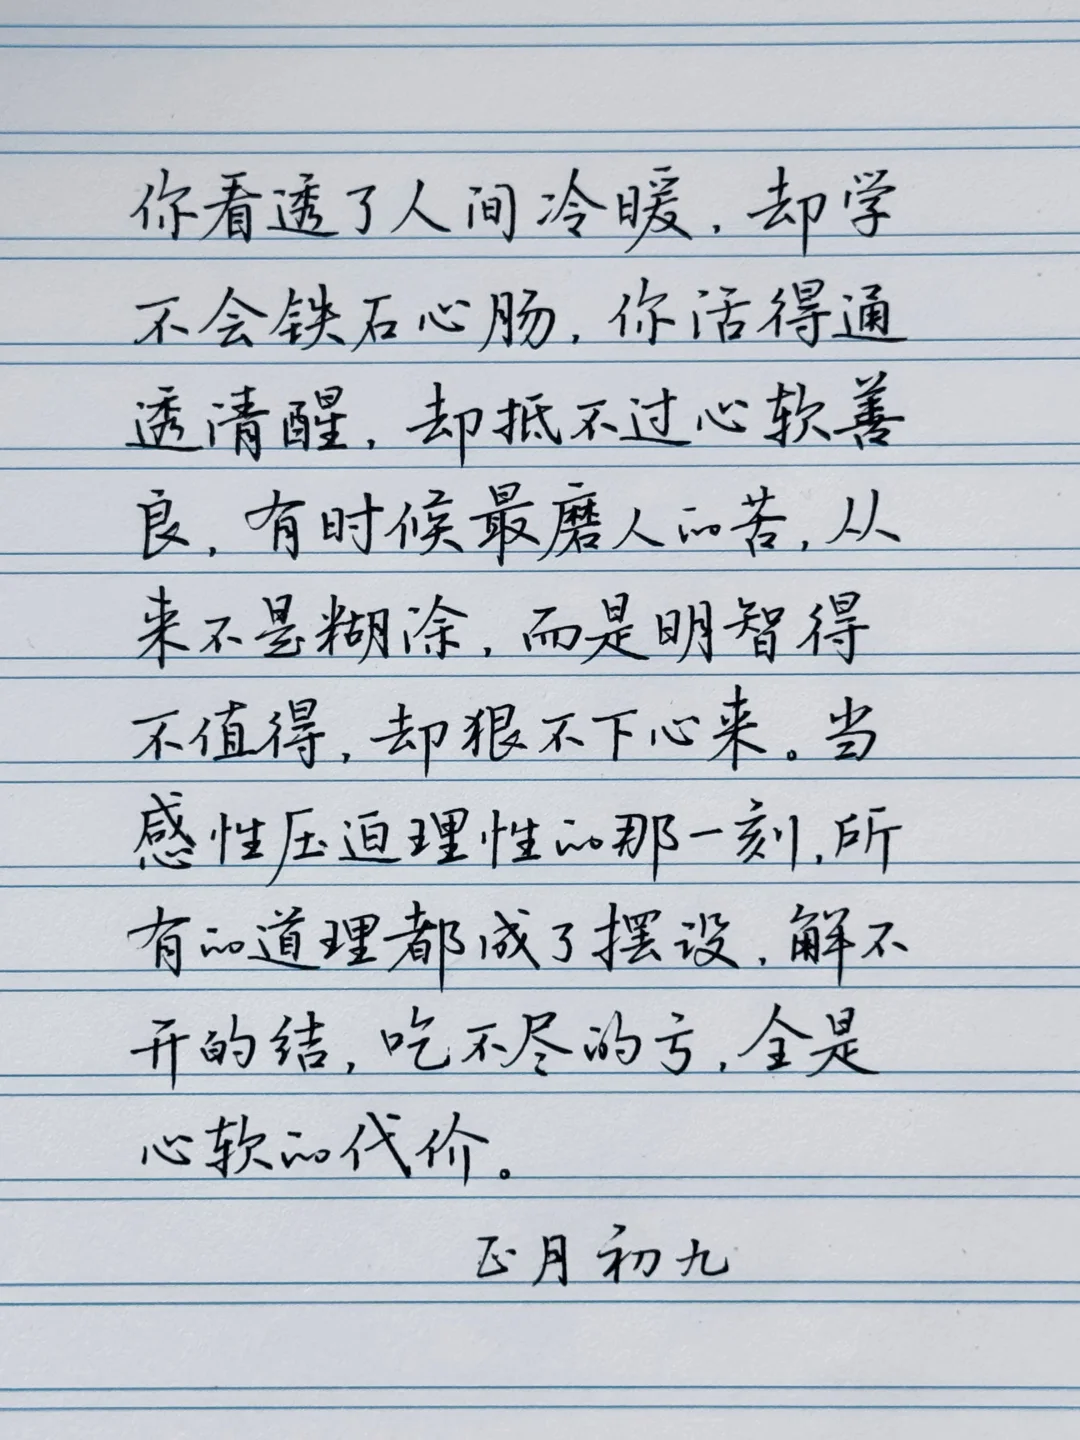 你看透了人间冷暖，却学
不会铁石心肠，你活得通
透清醒，却抵不过心软善
良，有时候最磨人的苦，从
来不是糊涂，而是明智得
不值得，却狠不下心来。当
感性压迫理性的那一刻，所
有的道理都成了摆设，解不
开的结，吃不尽的亏，全是
心软的代价。
正月初九